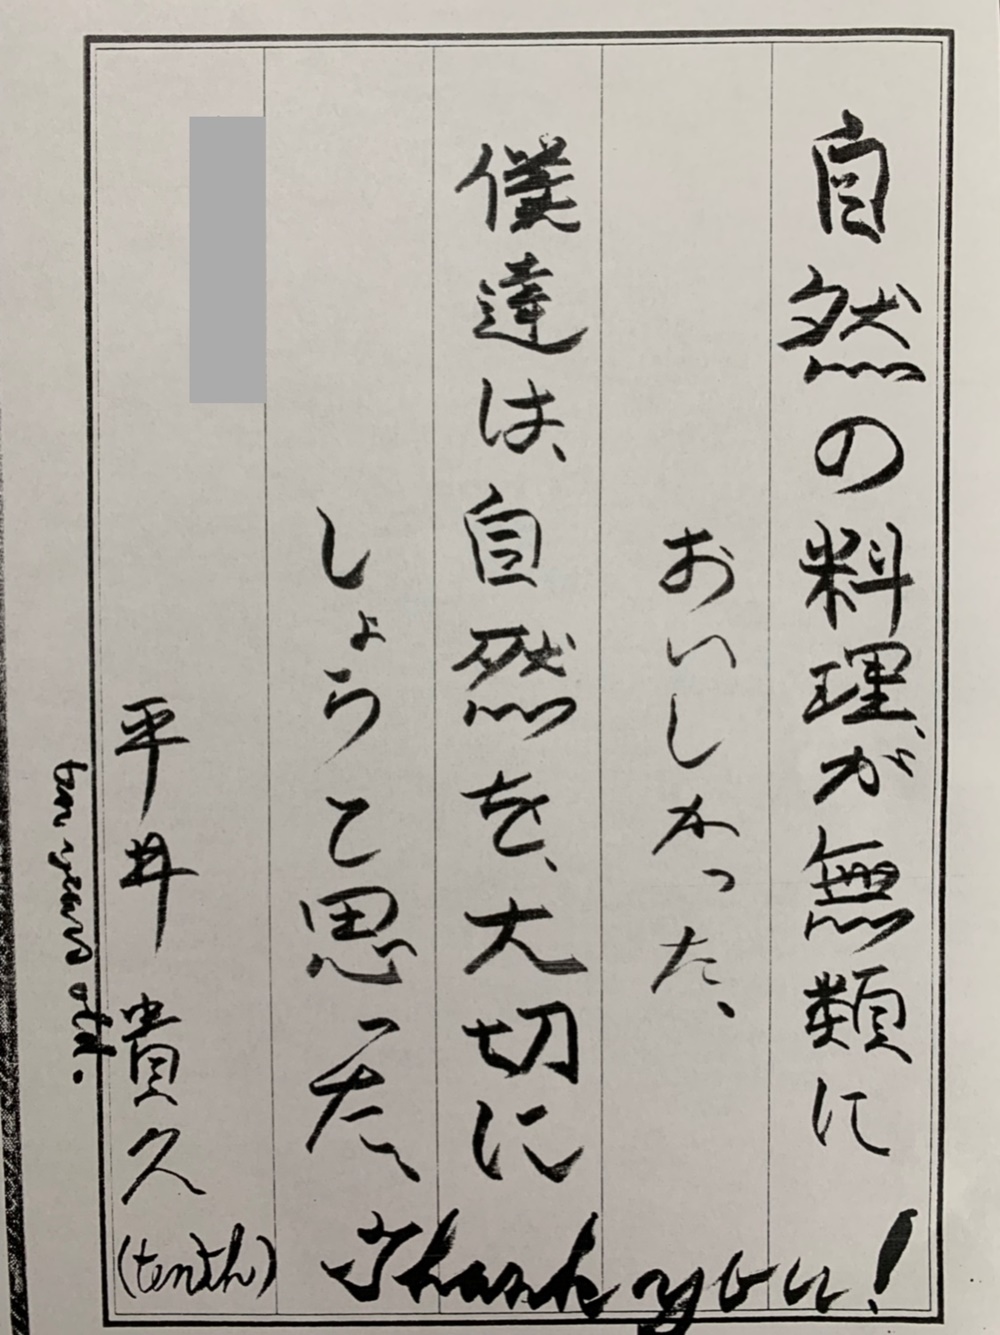 自然の料理が無類に
おいしかった、
僕達は、自然を、大切に
しょうと思った、
平井貴久
(tenth)
ten years old.
Thank you!